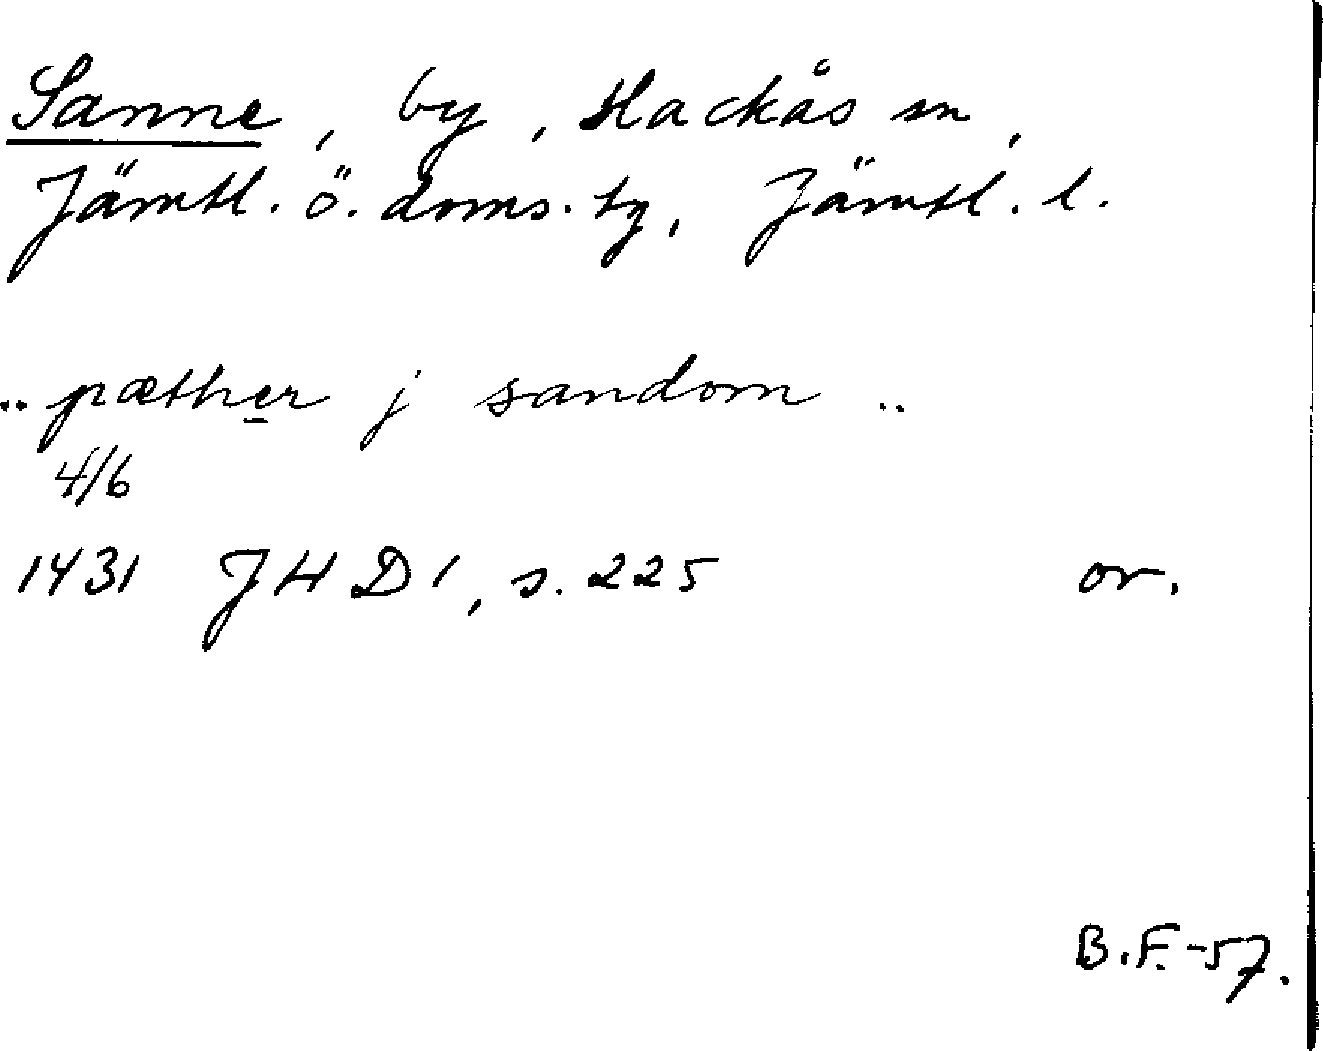 Sanne, by, Hackås sn,
Jämtl. ö. doms. tg, Jämtl. l.
.. pæther j sandom ..
4/6
1431 JHD 1, s. 225 or.
B.F.-57.